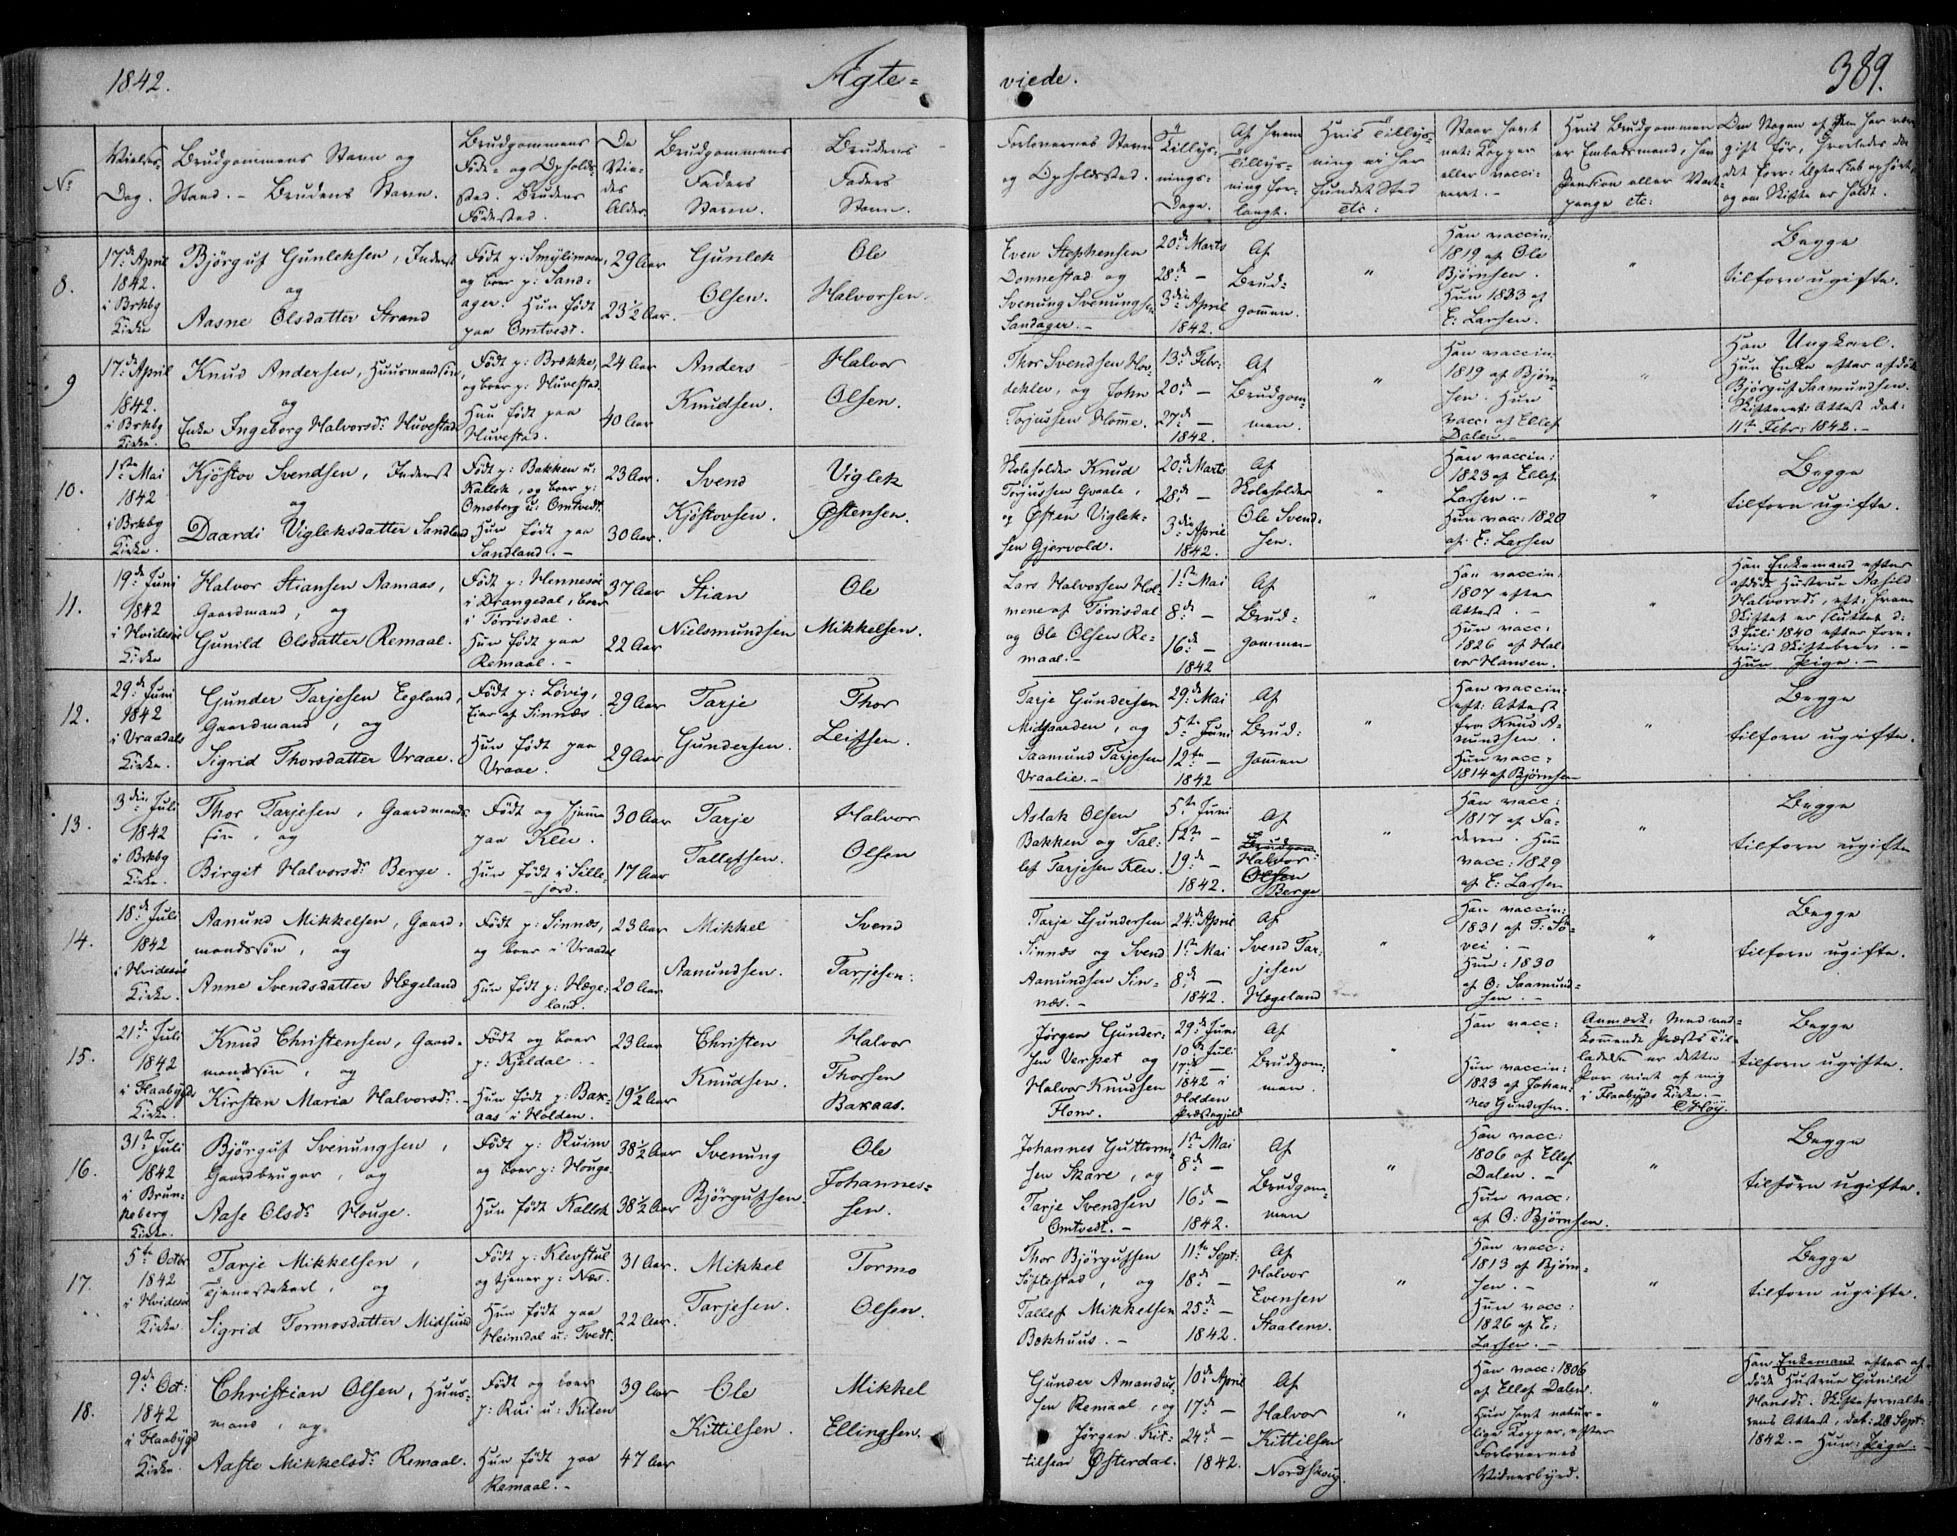 1842.
Ægte-
viede.
389.
No
Vielses-
Dag.
Brudgommens Navn og
Stand. - Brudens Navn.
Brudgommens
Føde- og Opholds-
sted. Brudens
Fødested.
De
Vie-
des
Alder.
Brudgommens
Faders
Navn.
Brudens
Faders
Navn.
Forlovernes Navn
og Opholdssted.
Tillys-
nings-
Dage.
Af hvem
Tillys-
ning for-
langt.
Hvis Tillys-
ning er her
fundet Sted
etc:
Naar havt
nat: Kopper
eller vacci-
neret. -
Hvis Brudgommen
er Embedsmand, han
Pension eller Vart-
penge etc:
Om Nogen af dem har været
gift før, hvorledes da
det forr: Ægteskab ophørt,
og om Skifte er holdt.
8.
17de April
1842.
i Brkbg
Kirke
Bjørguf Gunleksen, Inderst
og
Aasne Olsdatter Strand
Født p: Smylimoen,
og boer p: Sand-
ager. Hun født
paa Omtvedt.
29 Aar
23½ Aar.
Gunlek
Olsen.
Ole
Halvorsen.
Even Stephensen
Donnestad og
Svenung Svenungsen
Sandager. -
20de Marts
28de -
3die April
1842.
Af
Brud-
gommen.
"
Han vaccin:
1819 af Ole
Bjørnsen.
Hun 1833 af
E: Larsen.
"
Begge
tilforn ugifte.
9
17de April
1842.
i Brkbg
Kirke
Knud Andersen, Huusmandsøn,
og
Enke Ingeborg Halvorsdr Huvestad
Født p: Brække,
og boer p: Huvestad.
Hun født paa
Huvestad.
24 Aar
40 Aar
Anders
Knudsen.
Halvor
Olsen.
Thor Svendsen Hov-
deklev, og John
Torjussen Homme.
13de Febr:
20de -
27de -
1842.
Af
Brudgom-
men.
"
Han vaccin:
1819 af Bjørn
sen. Hun
vacc: af Ellef
Dalen -
"
Han Ungkarl.
Hun Enke efter afdøde
Bjørguf Saamundsen.
Skifteret: Attest dat:
11te Febr: 1842. -
10.
1ste Mai
1842
i Brkbg
Kirke.
Kjøstov Svendsen, Inderst
og
Daardi Vigleksdatter Sandland
Født p: Bakken u:
Kallek, og boer p:
Omsberg u: Omtvedt.
Hun født paa
Sandland. -
23 Aar.
30 Aar.
Svend
Kjøstovsen.
Viglek
Østensen.
Skoleholder Knud
Torjussen Qvaale,
og Østen Viglek-
sen Gjervold.
20de Marts
28de -
3die April
1842.
Af
Skoleholder
Ole Svend-
sen.
"
Han vaccin:
1823 af Ellef
Larsen. -
Hun vacc: 1820
af E: Larsen
"
Begge
tilforn ugifte.
11.
19de Juni
1842
i Hvidesøi
Kirke
Halvor Stiansen Aamaas,
Gaardmand, og
Gunild Olsdatter Remaal.
Født p: Hennesøi
i Drangedal, boer
i Torrisdal.
Hun født paa
Remaal. -
37 Aar
22 Aar
Stian
Nielsmundsen
Ole
Mikkelsen.
Lars Halvorsen Hol-
mene af Torrisdal
og Ole Olsen Re-
maal. -
1ste Mai
8de -
16de -
1842
Af
Brud-
gommen
"
Han vaccin:
1807 efter
Attest. -
Hun vacc:
1826 af Hal-
vor Hansen.
"
Han Enkemand efter
afdøde Hustrue Aasild
Halvorsdr, eft: hvem
Skiftet er sluttet d:
3 Juli 1840 efter fore-
viist Skiftebrev. -
Hun Pige. -
12.
29de Juni
1842
i Vraadals
Kirke.
Gunder Tarjesen Egland,
Gaardmand, og
Sigrid Thorsdatter Vraae.
Født p: Løvig,
Eier af Sinnæs.
Hun født paa
Vraae.
29 Aar
29 Aar
Tarje
Gundersen.
Thor
Leifsen.
Tarje Gundersen
Midgaarden, og
Saamund Tarjesen
Vraalie. -
29de Mai
5te Juni
12te -
1842
Af
Brud-
gommen
"
Han vaccin
eft: Attest
fra Knud A-
nundsen.
Hun vacc:
1814 af Bjørnsen
"
Begge
tilforn ugifte.
13.
3die Juli
1842
i Brkbg
Kirke.
Thor Tarjesen, Gaardmands
søn, og
Birgit Halvorsdr Berge.
Født og hjemme
paa Klev.
Hun født i Sille-
jord.
30 Aar
17 Aar
Tarje
Tallefsen.
Halvor
Olsen
Aslak Olsen
Bakken og Tal-
lef Tarjesen Klev.
5te Juni
12te -
19de -
1842.
Af
Brudgom-
Halvor
Olsen
Berge
"
Han vacc:
1817 af Fa-
deren. Hun
vacc: 1829
af E: Larsen
"
Begge
tilforn ugifte
14.
18de Juli
1842
i Hvidesøi
Kirke.
Aanund Mikkelsen, Gaard-
mandssøn, og
Anne Svendsdatter Hægeland
Født p: Sinnæs,
og boer i Vraadal
Hun født p: Hæge-
land.
23 Aar
20 Aar
Mikkel
Aanundsen.
Svend
Tarjesen.
Tarje Gundersen
Sinnæs og Svend
Aanundsen Sin-
næs. -
24de April
1ste Mai
8de -
1842.
Af
Svend Tar-
jesen
Hægeland
"
Han vaccin:
1831 af T: Fo-
vei. -
Hun: 1830
af O: Saamund-
sen. -
"
Begge
tilforn ugifte.
15.
21de Juli
1842
i Flaabygd
Kirke.
Knud Christensen, Gaard-
mandssøn, og
Kirsten Maria Halvorsdr. -
Født og boer
p: Kjeldal. -
Hun født p: Bak-
aas i Holden.
23 Aar
19½ Aar
Christen
Knudsen.
Halvor
Thorsen
Bakaas.
Jørgen Gunder-
sen Verpet og
Halvor Knudsen
Flom.
29de Juni
10de Juli
17de -
1842 i
Holden
Præstegjeld
Af
Brudgom-
men.
"
Han vacc:
Hun vaccin:
1823 af Johan-
nes Gundersen.
Anmærk: Med ved-
kommende Præsts Til-
ladelse er dette
Par viet af mig
i Flaabygds Kirke. -
CHøy.
Begge
tilforn ugifte.
16.
31te Juli
1842
i Brun-
keberg
Kirke.
Bjørguf Svenungsen,
Gaardbruger, og
Aase Olsdr Houge.
Født p: Ruim
og boer p: Houge.
Hun født Kallek
38½ Aar
38½ Aar
Svenung
Bjørgufsen
Ole
Johannes-
sen.
Johannes Guttorm-
sen Skare, og
Tarje Svendsen
Omtvedt. -
1ste Mai
8de -
16de -
1842.
Af
Brudgom-
men
"
Han vacc:
1806 af Ellef
Dalen. -
Hun vacc:
af O: Bjørnsen.
"
Begge
tilforn ugifte.
17.
5te Octbr
1842
i Hvidesøi
Kirke
Tarje Mikkelsen,
Tjenestekarl, og
Sigrid Tormosdatter Midsund
Født p: Klevstul
og tjener p: Næs.
Hun født paa
Heimdal u: Tvedt.
31 Aar.
22 Aar.
Mikkel
Tarjesen.
Tormo
Olsen.
Thor Bjørgufsen
Søftestad, og
Tallef Mikkelsen
Bækhuus. -
11te Sept:
18de -
25de -
1842.
Af
Halvor
Evensen
Staalene.
"
Han vacc:
1813 af Bjørn-
sen. -
Hun vacc:
1826 af E:
Larsen. -
"
Begge
tilforn ugifte.
18.
9de Oct:
1842
i Flaabygd
Kirke.
Christian Olsen, Huus-
mand, og
Aaste Mikkelsdr Remaal.
Født og boer
p: Rui u: Kilen
Hun født paa
Remaal. -
39 Aar
47 Aar
Ole
Kittilsen.
Mikkel
Ellingsen.
Gunder Amunds-
sen Remaal, og
Jørgen Kit-
tilsen Østerdal.
10de April
17de -
24de -
1842.
Af
Halvor
Kittilsen
Nordskoug.
"
Han vacc: 1806
af Ellef Dalen.
Hun havt natur-
lige Kopper, efter
Forlovernes
Vidnesbyrd.
"
Han Enkemand efter af-
døde Hustrue Gunild
Hansdr. Skifteforvalte-
rens Attest, dat: 28 Sept:
1842. - Hun: Pige. -